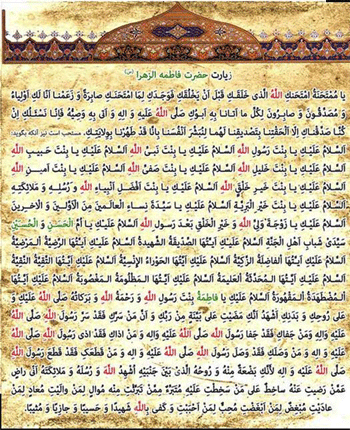 زیارت حضرت فاطمه الزهرا (س)
یا مُمْتَحَنَةُ امْتَحَنَكِ اللَّهُ الَّذى خَلَقَكِ قَبْلَ اَنْ يَخْلُقَكِ فَوَجَدَكِ لِمَا امْتَحَنَكِ صابِرَةً وَ زَعَمْنا اَنّا لَكِ اَوْلِياءُ
وَ مُصَدِّقُونَ وَ صابِرُونَ لِكُلِّ ما اَتانا بِهِ اَبُوكِ صَلَّى اللَّهُ عَلَيْهِ وَ الِهِ وَ اَتى بِهِ وَصِيُّهُ فَاِنّا نَسْئَلُكِ اِنْ
كُنّا صَدَّقْناكِ اِلاّ اَلْحَقْتِنا بِتَصْديقِنا لَهُما لِنُبَشِّرَ اَنْفُسَنا بِاَنّا قَدْ طَهُرْنا بِوِلايَتِكِ. مستحب است نیز آنکه بگوید:
اَلسَّلامُ عَلَيْكِ يا بِنْتَ رَسُولِ اللَّهِ اَلسَّلامُ عَلَيْكِ يا بِنْتَ نَبِىِّ اللَّهِ اَلسَّلامُ عَلَيْكِ يا بِنْتَ حَبيبِ اللَّهِ
اَلسَّلامُ عَلَيْكِ يا بِنْتَ خَليلِ اللَّهِ اَلسَّلامُ عَلَيْكِ يا بِنْتَ صَفِىِّ اللَّهِ اَلسَّلامُ عَلَيْكِ يا بِنْتَ اَمينِ اللَّهِ
اَلسَّلامُ عَلَيْكِ يا بِنْتَ خَيْرِ خَلْقِ اللَّهِ اَلسَّلامُ عَلَيْكِ يا بِنْتَ اَفْضَلِ اَنْبِياءِ اللَّهِ وَ رُسُلِهِ وَ مَلائِكَتِهِ
اَلسَّلامُ عَلَيْكِ يا بِنْتَ خَيْرِ الْبَرِيَّةِ اَلسَّلامُ عَلَيْكِ يا سَيِّدَةَ نِساءِ الْعالَمينَ مِنَ الْاَوَّلينَ وَ الْاخِرينَ
اَلسَّلامُ عَلَيْكِ يا زَوْجَةَ وَلِىِّ اللَّهِ وَ خَيْرِ الْخَلْقِ بَعْدَ رَسُولِ اللَّهِ اَلسَّلامُ عَلَيْكِ يا اُمَّ الْحَسَنِ وَ الْحُسَيْنِ
سَيِّدَىْ شَبابِ اَهْلِ الْجَنَّةِ اَلسَّلامُ عَلَيْكِ اَيَّتُهَا الصِّدّيقَةُ الشَّهيدَةُ اَلسَّلامُ عَلَيْكِ اَيَّتُهَا الرَّضِيَّةُ الْمَرْضِيَّةُ
اَلسَّلامُ عَلَيْكِ اَيَّتُهَا الْفاضِلَةُ الزَّكِيَّةُ اَلسَّلامُ عَلَيْكِ اَيَّتُهَا الْحَوْراءُ الْاِنْسِيَّةُ اَلسَّلامُ عَلَيْكِ اَيَّتُهَا التَّقِيَّةُ النَّقِيَّةُ
اَلسَّلامُ عَلَيْكِ اَيَّتُهَا الْمُحَدَّثَةُ الْعَليمَةُ اَلسَّلامُ عَلَيْكِ اَيَّتُهَا الْمَظْلُومَةُ الْمَغْصُوبَةُ اَلسَّلامُ عَلَيْكِ اَيَّتُهَا
الْمُضْطَهَدَةُ الْمَقْهُورَةُ اَلسَّلامُ عَلَيْكِ يا فاطِمَةُ بِنْتَ رَسُولِ اللَّهِ وَ رَحْمَةُ اللَّهِ وَ بَرَكاتُهُ صَلَّى اللَّهُ عَلَيْكِ وَ
عَلى رُوحِكِ وَ بَدَنِكِ اَشْهَدُ اَنَّكِ مَضَيْتِ عَلى بَيِّنَةٍ مِنْ رَبِّكِ وَ اَنَّ مَنْ سَرَّكِ فَقَدْ سَرَّ رَسُولَ اللَّهِ صَلَّى اللَّهُ
عَلَيْهِ وَالِهِ وَمَنْ جَفاكِ فَقَدْ جَفا رَسُولَ اللَّهِ صَلَّى اللَّهُ عَلَيْهِ وَالِهِ وَ مَنْ اذاكِ فَقَدْ اذى رَسُولَ اللَّهِ صَلَّى اللَّهُ
عَلَيْهِ وَ الِهِ وَمَنْ وَصَلَكِ فَقَدْ وَصَلَ رَسُولَ اللَّهِ صَلَّى اللَّهُ عَلَيْهِ وَ الِهِ وَ مَنْ قَطَعَكِ فَقَدْ قَطَعَ رَسُولَ اللَّهِ
صَلَّى اللَّهُ عَلَيْهِ وَ الِهِ لِاَنَّكِ بَضْعَةٌ مِنْهُ وَ رُوحُهُ الَّذى بَيْنَ جَنْبَيْهِ اُشْهِدُ اللَّهَ وَ رُسُلَهُ وَ مَلائِكَتَهُ اَنّى راضٍ
عَمَّنْ رَضيتِ عَنْهُ ساخِطٌ عَلى مَنْ سَخِطْتِ عَلَيْهِ مُتَبَرِّئٌ مِمَّنْ تَبَرَّئْتِ مِنْهُ مُوالٍ لِمَنْ والَيْتِ مُعادٍ لِمَنْ
عادَيْتِ مُبْغِضٌ لِمَنْ اَبْغَضْتِ مُحِبٌّ لِمَنْ اَحْبَبْتِ وَ كَفى بِاللَّهِ شَهيداً وَ حَسيباً وَ جازِياً وَ مُثيباً.